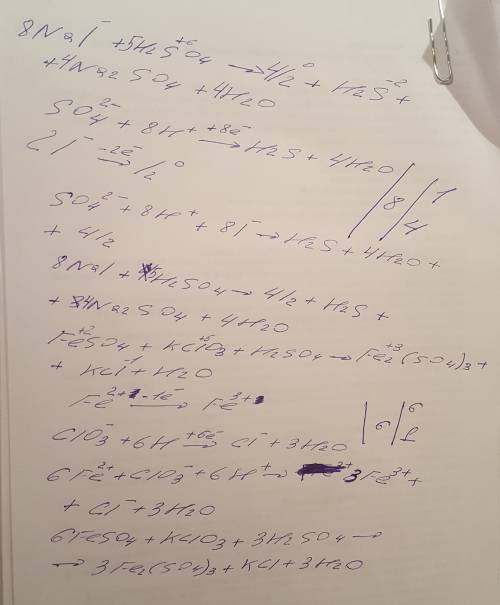 8NaI⁻ + 5H₂S⁺⁶O₄ → 4I₂⁰ + H₂S⁻² +
+ 4Na₂SO₄ + 4H₂O
SO₄²⁻ + 8H⁺ +8e⁻ → H₂S + 4H₂O | 8 | 1
2I⁻ -2e⁻ → I₂⁰ 4
SO₄²⁻ + 8H⁺ + 8I⁻ → H₂S + 4H₂O +
+ 4I₂
8NaI + 5H₂SO₄ → 4I₂ + H₂S +
+ 4Na₂SO₄ + 4H₂O
Fe⁺²SO₄ + KCl⁺⁵O₃ + H₂SO₄ → Fe₂⁺³(SO₄)₃ +
+ KCl⁻¹ + H₂O
Fe²⁺ -1e⁻ → Fe³⁺ | 6 | 6
ClO₃⁻ + 6H⁺ +6e⁻ → Cl⁻ + 3H₂O 1
6Fe²⁺ + ClO₃⁻ + 6H⁺ → 3Fe³⁺ +
+ Cl⁻ + 3H₂O
6FeSO₄ + KClO₃ + 3H₂SO₄ →
→ 3Fe₂(SO₄)₃ + KCl + 3H₂O